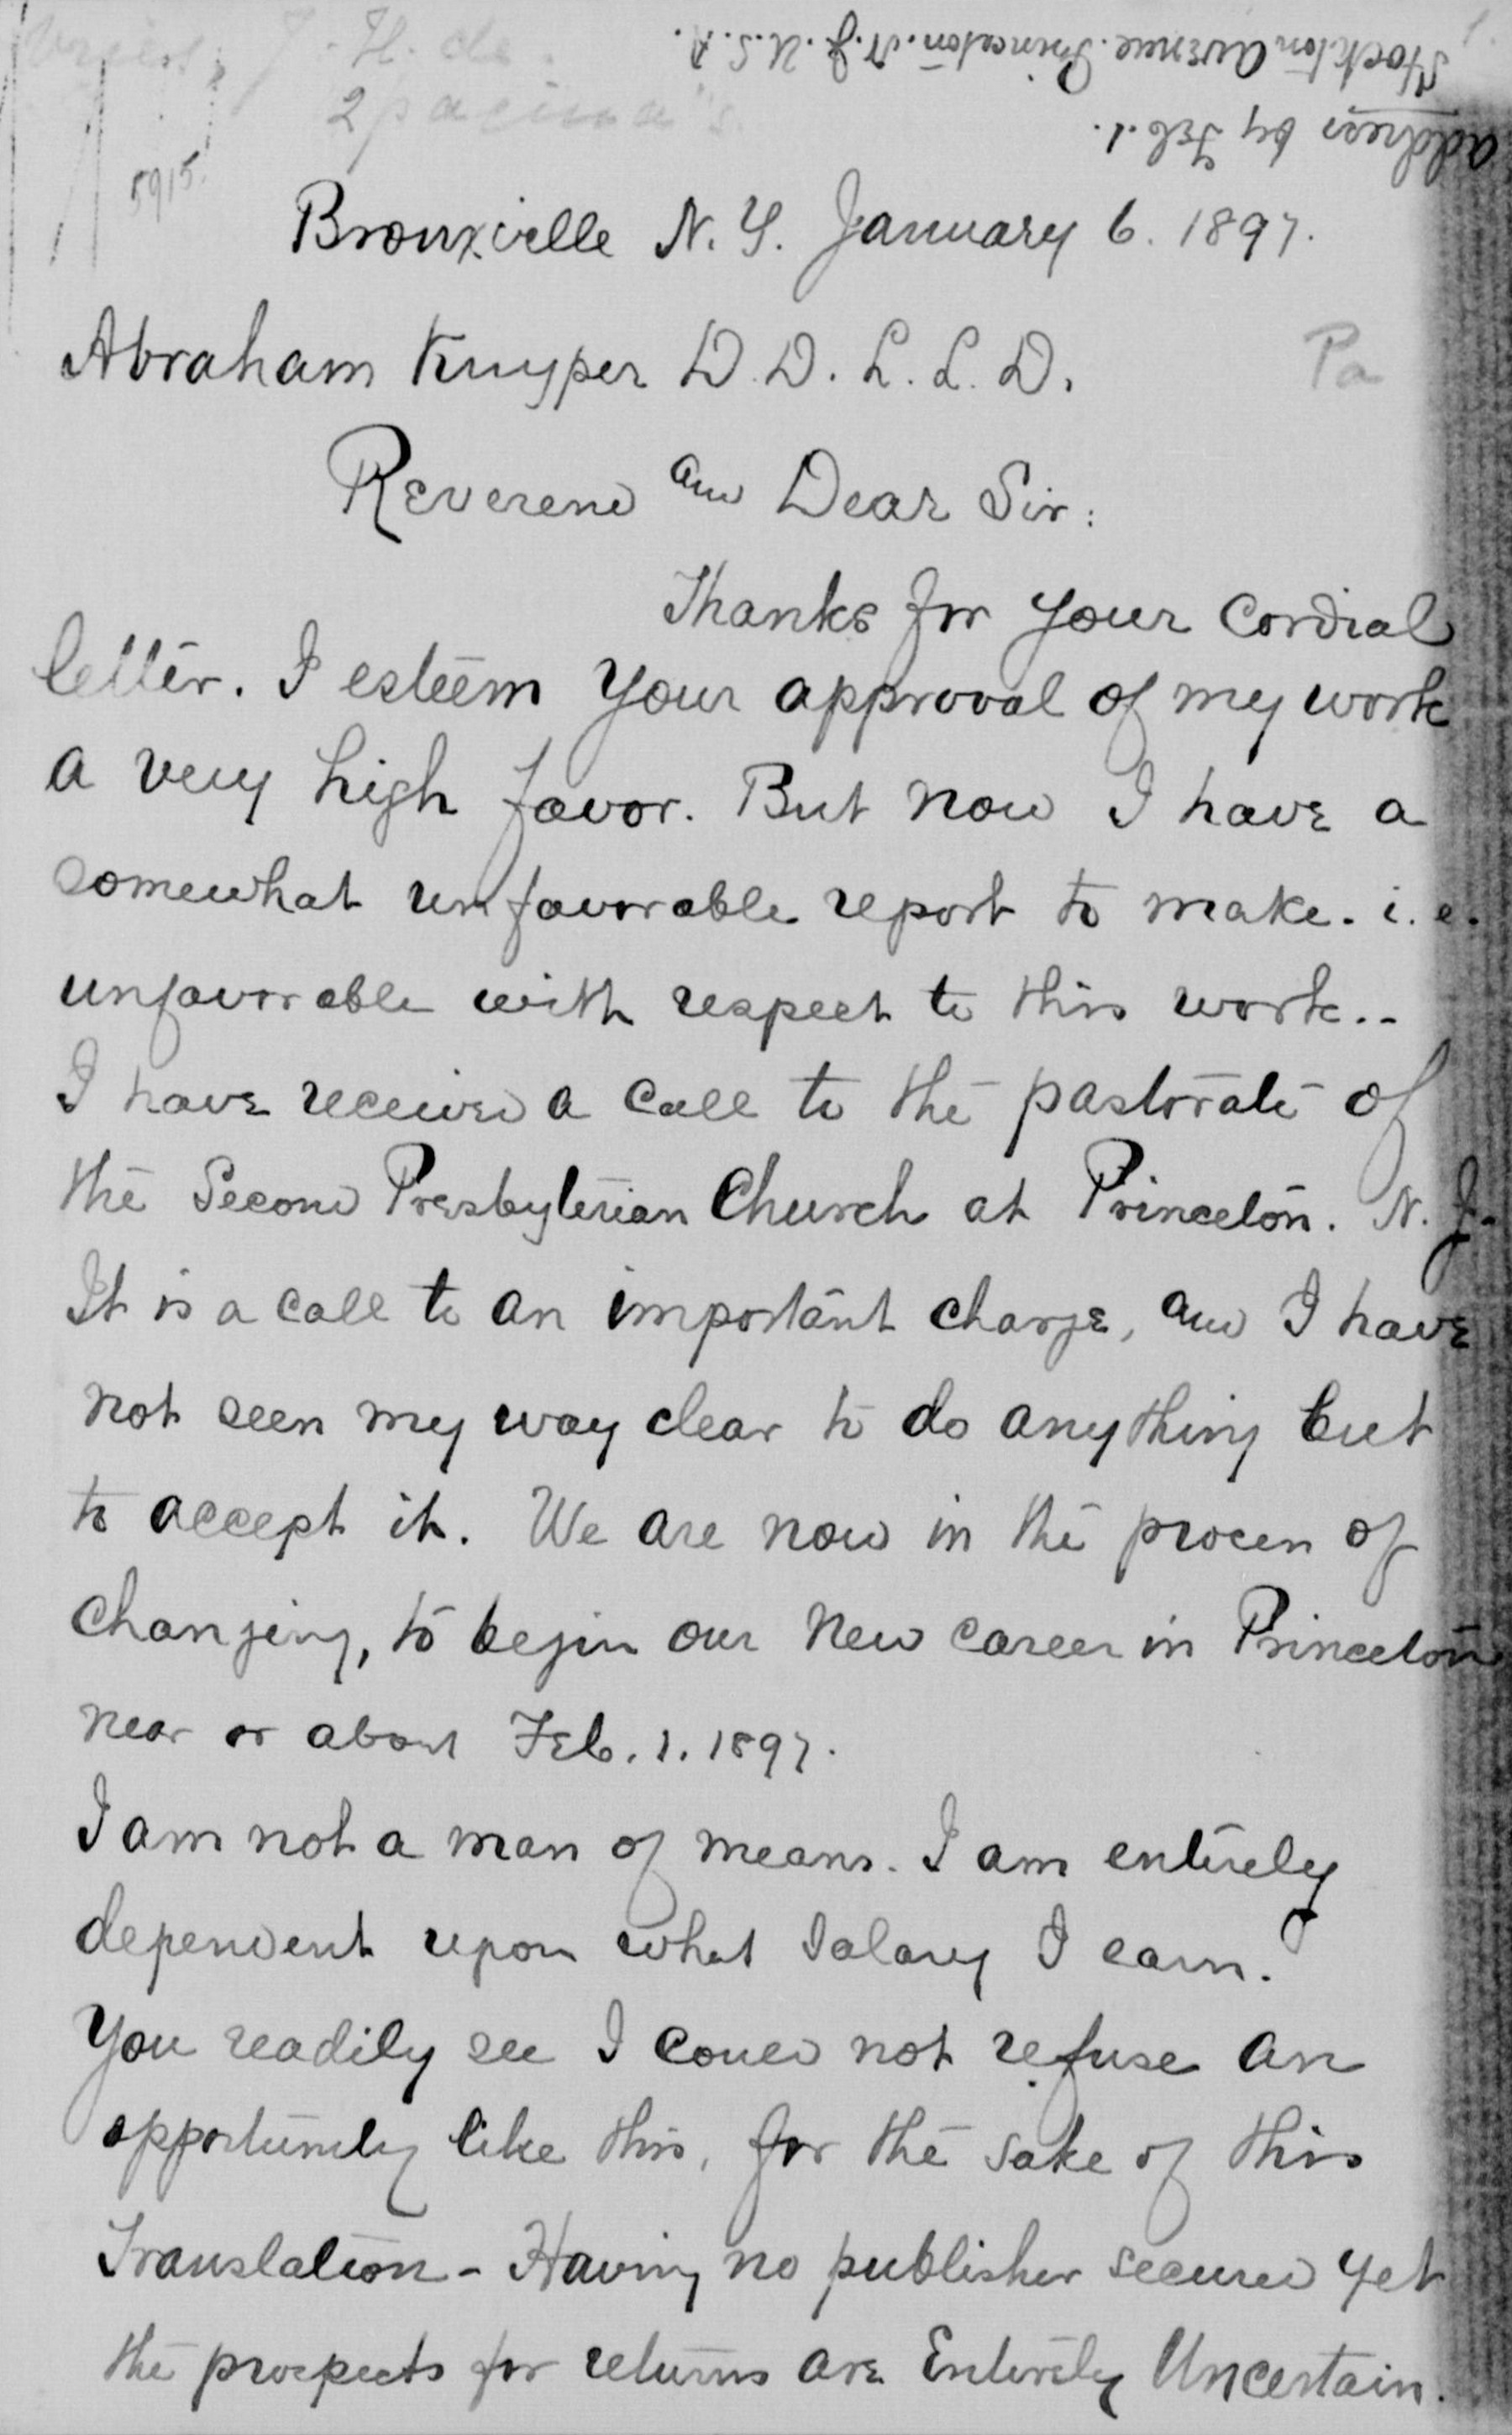 Vries, J. H. de.
2 pagina's.
5915.
address by Feb. 1.
Stockton Avenue. Princeton. N. J. U. S. A.
Bronxville N. Y. January 6. 1897.
Abraham Kuyper D. D. L. L. D.
Pa
Reverend and Dear Sir:
Thanks for your cordial
letter. I esteem your approval of my work
a very high favor. But now I have a
somewhat unfavorable report to make. i. e.
unfavorable with respect to this work..
I have received a call to the pastorate of
the Second Presbyterian Church at Princeton. N. J.
It is a call to an important charge, and I have
not seen my way clear to do anything but
to accept it. We are now in the process of
changing, to begin our new career in Princeton
near or about Feb. 1. 1897.
I am not a man of means. I am entirely
dependent upon what salary I earn.
You readily see I could not refuse an
opportunity like this, for the sake of this
Translation - Having no publisher secured yet
the prospects for returns are Entirely Uncertain.